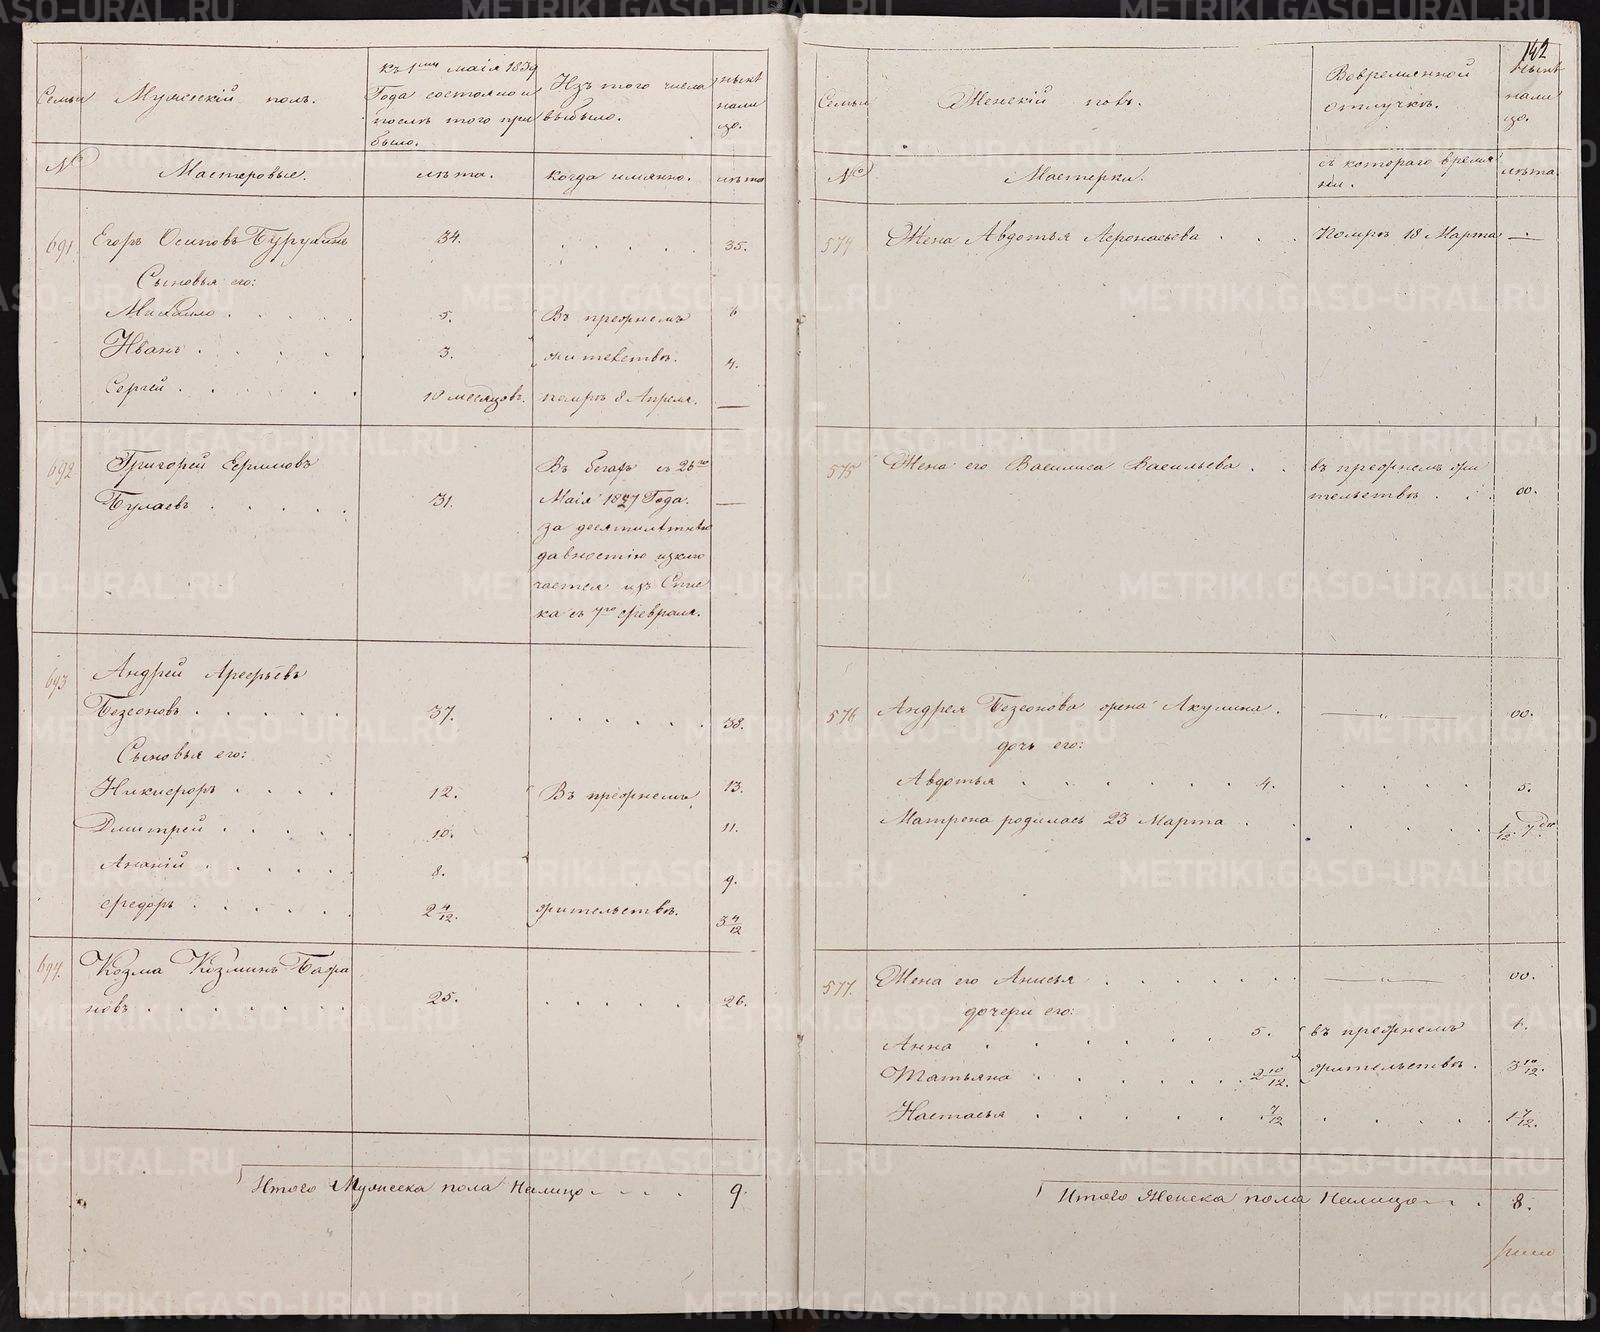 Семьи
Мужескiй полъ.
Къ 1му маiя 1839
Года состояло и
послѣ того при
было.
Изъ того числа
выбыло.
нынѣ
нали
цо.
№
Мастеровые.
лѣта.
когда имянно.
лѣта
691.
Егоръ Осиповъ
34.
35.
Сыновья его:
Михайло
5.
Въ прежнемъ
6
Иванъ
3.
жительствѣ.
4.
Сергей
10 месяцовъ.
померъ 8 Апреля.
—
692
Григорей
Булаевъ
31.
Въ бегахъ съ 26го
Маiя 1827 Года.
за десятилѣтнею
давностiю изклю
чается изъ Спис
ка съ 7го февраля.
—
693
Андрей Арефьевъ
Безсоновъ
37.
38.
Сыновья его:
Никифоръ
12.
Въ прежнемъ
13.
Дмитрей
10.
11.
Ананiй
8.
9.
Федоръ
2 4/12.
жительствѣ.
3 4/12
694.
Козма Козминъ Бажа
новъ
25.
26.
Итого Мужеска пола Налицо
9.
142
Семьи
Женскiй полъ.
Вовремянной
отлучкѣ.
Нынѣ
нали
цо.
№
Мастерки.
съ котораго время
ни.
лѣта.
574
Жена Авдотья Афонасьева
Померъ 18 Марта
—
575
Жена его Василиса Васильева
въ прежнемъ жи
тельствѣ
00.
576
Андрея Безсонова жена Акулина
— „ —
00.
дочь его:
Авдотья
4.
5.
Матрена родилась 23 Марта
1/12 7 дн
577.
Жена его Анисья
— „ —
00.
дочери его:
Анна
5.
въ прежнемъ
6.
Татьяна
2 10/12.
жительствѣ.
3 10/12.
Настасья
7/12
1 7/12.
Итого Женска пола Налицо
8.
METRIKI.GASO-URAL.RU